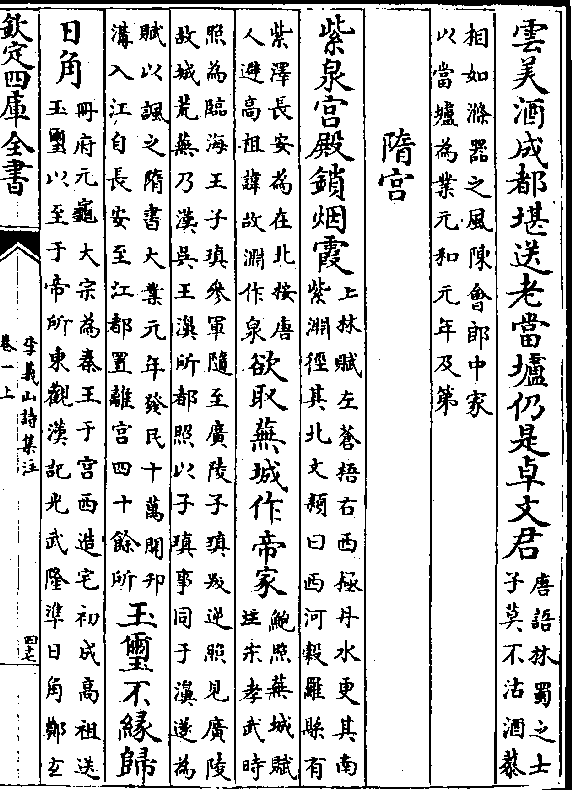 雲美酒成都堪送老當壚仍是卓文君唐語林蜀之士子莫不沽酒慕
相如滌器之風陳會郎中家以當壚為業元和元年及第
隋宫
紫泉宫殿鎖烟霞上林賦左蒼梧右西極丹水更其南紫淵徑其北文頴曰西河榖羅縣有
紫澤長安為在北按唐人避高祖諱故淵作泉欲取蕪城作帝家鮑照蕪城賦註宋孝武時
照為臨海王子瑱參軍隨至廣陵子瑱叛逆照見廣陵故城荒蕪乃漢吳王濞所都照以子瑱事同于濞遂為
賦以諷之隋書大業元年發民十萬開邗溝入江自長安至江都置離宫四十餘所玉璽不緣歸
日角冊府元龜太宗為秦王于宫西造宅初成高祖送玉璽以至于帝所東觀漢記光武隆準日角鄭玄
欽定四庫全書
李義山詩集注
卷一上
四七